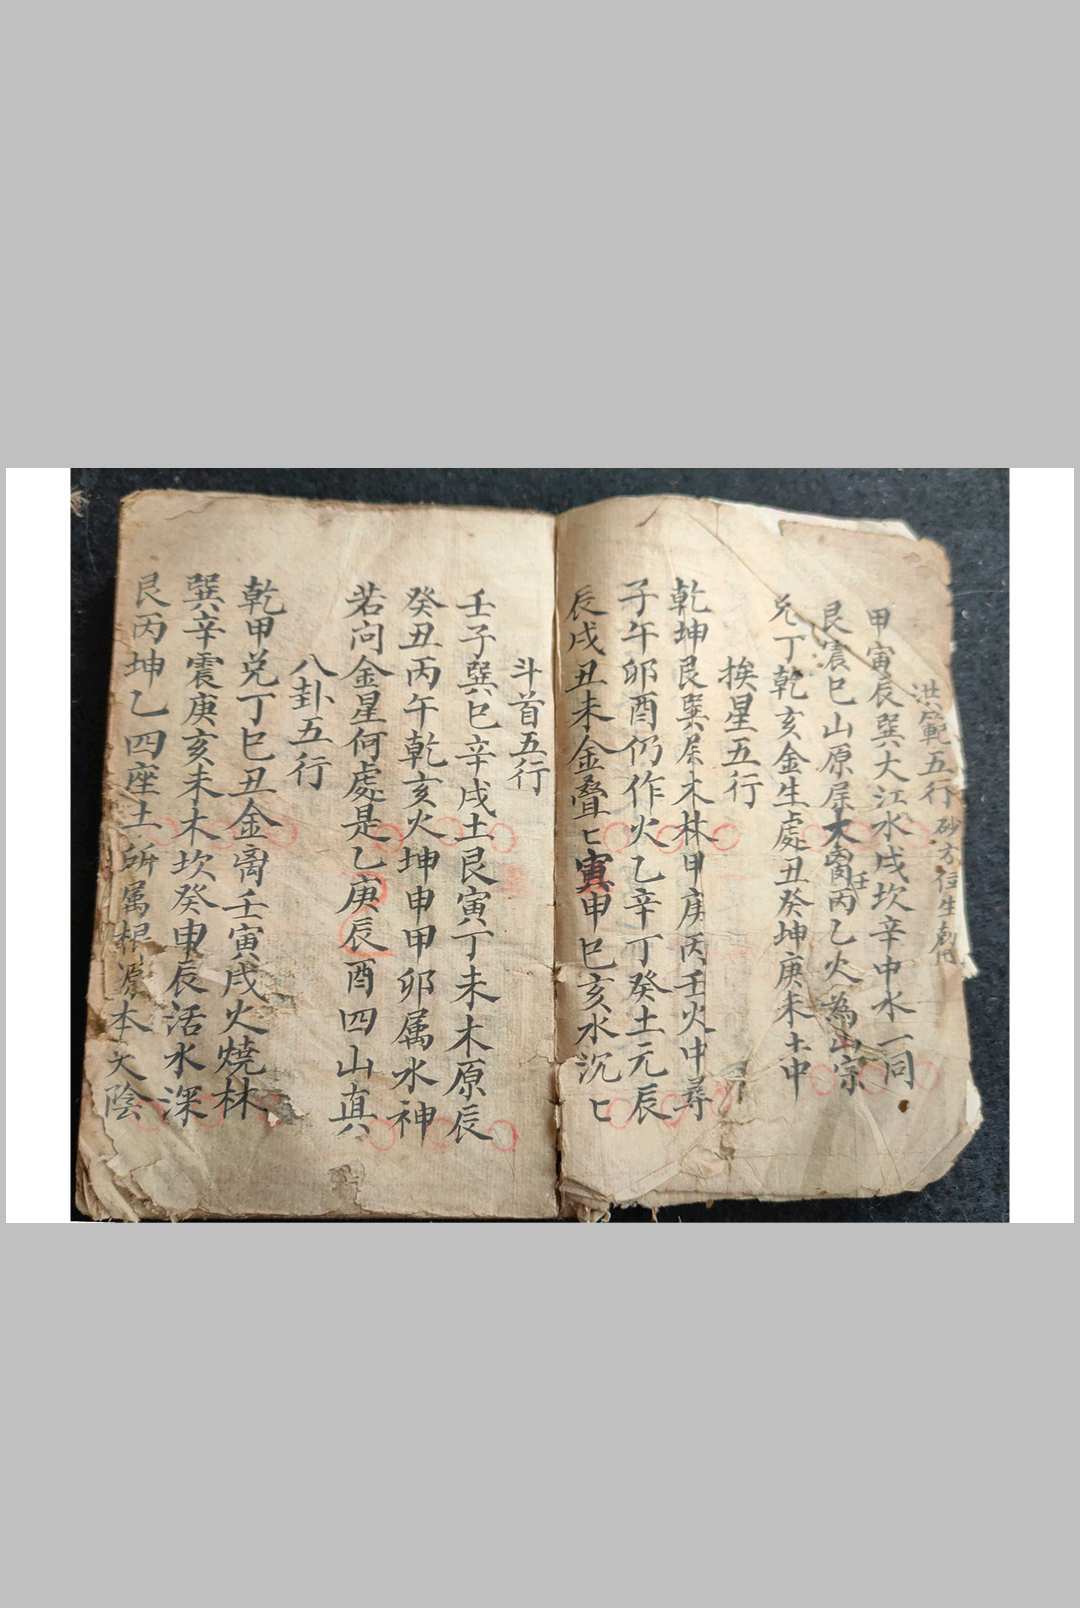 洪範五行 砂方任生剋伩
甲寅辰巽大江水戌坎辛申水一同
艮震巳山原属木离壬丙乙火為山宗
兑丁乾亥金生處丑癸坤庚未土中
挨星五行
乾坤艮巽属木林甲庚丙壬火中尋
子午卯酉仍作火乙辛丁癸土元辰
辰戌丑未金叠匕寅申巳亥水沉匕
斗首五行
壬子巽巳辛戌土艮寅丁未木原辰
癸丑丙午乾亥火坤申甲卯属水神
若问金星何處是乙庚辰酉四山真
八卦五行
乾甲兑丁巳丑金离壬寅戌火燒林
巽辛震庚亥未木坎癸申辰活水深
艮丙坤乙四座土所属根源本文陰